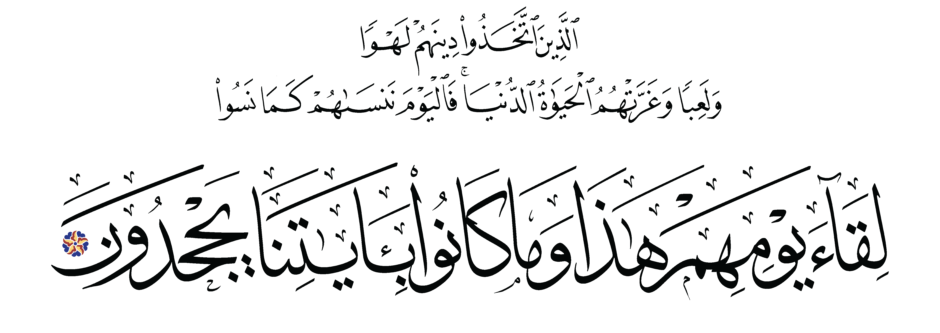 ٱلَّذِينَ ٱتَّخَذُوا۟ دِينَهُمْ لَهْوًا
وَلَعِبًا وَغَرَّتْهُمُ ٱلْحَيَوٰةُ ٱلدُّنْيَا ۚ فَٱلْيَوْمَ نَنسَىٰهُمْ كَمَا نَسُوا۟
لِقَآءَ يَوْمِهِمْ هَٰذَا وَمَا كَانُوا۟ بِـَٔايَٰتِنَا يَجْحَدُونَ